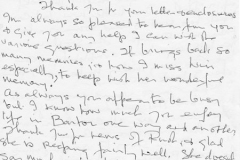 Thank you for your letter + enclosures
I'm always so pleased to hear from you
& to give you any help I can with the
various questions. It brings back so
many memories is how I miss him
especially, to help with her wonderful
memory.
As always you appear to be busy
but I know how much you enjoy
life in Barton one way and another
Thank you for news of Ruth, glad
she is keeping fairly well. She